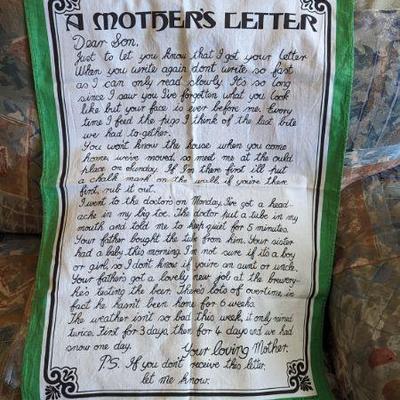 A MOTHER'S LETTER
Dear Son,
Just to let you know that I got your letter
When you write again dont write so fast
as I can only read slowly. It's so long
since I saw you I've forgotten what you look
like but your face is ever before me. Every
time I feed the pigs I think of the last bite
we had to-gether.
You wont know the house when you come
home, we've moved, so meet me at the ould
place on Sunday. If I'm there first i'll put
a chalk mark on the wall, if you're there
first, rub it out.
I went to the doctors on Monday. I've got a head-
ache in my big toe. The doctor put a tube in my
mouth and told me to keep quiet for 5 minutes.
Your father bought the tube from him. Your sister
had a baby this morning I'm not sure if it's a boy
or girl, so I dont know if you're an aunt or uncle.
Your father's got a lovely new job at the brewery-
he's testing the beer. There's lots of overtime in
fact he hasn't been home for 6 weeks.
The weather isn't so bad this week, it only rained
twice. First for 3 days, then for 4 days and we had
snow one day.
Your loving Mother.
P.S. If you don't receive this letter,
let me know.